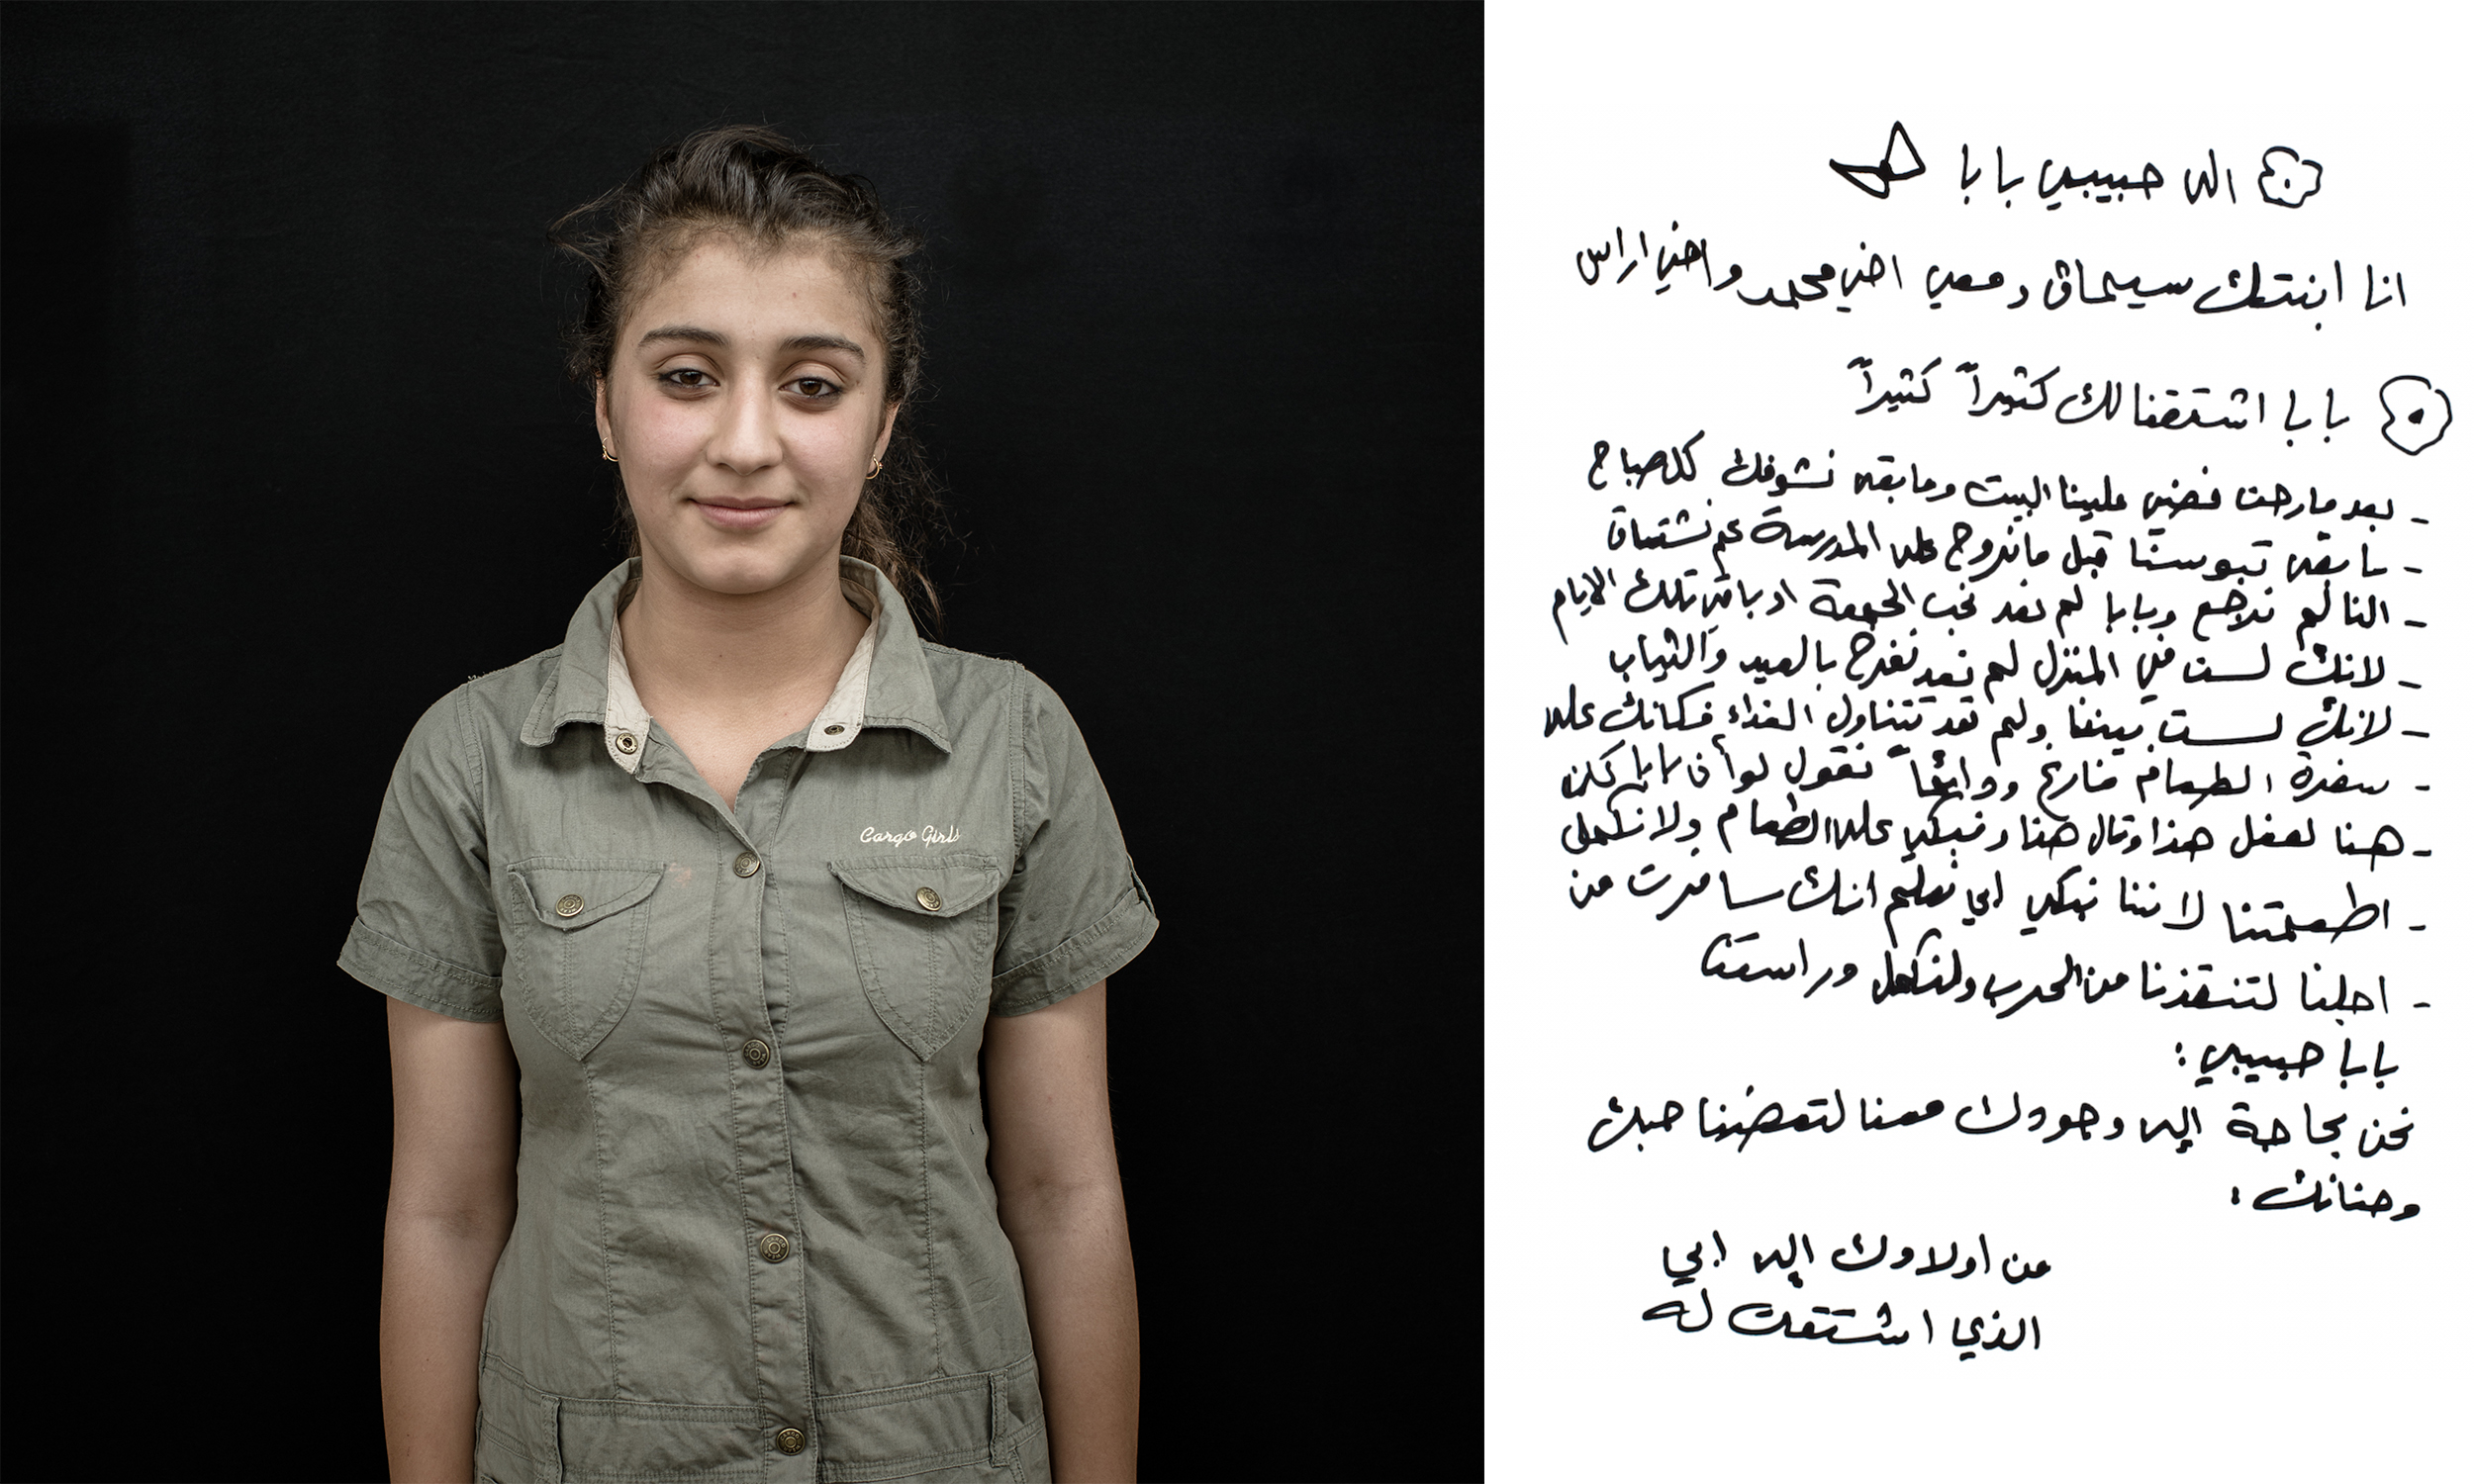 Cargo Girls
الى حبيبي بابا
انا ابنتك سيماق ومعي اخي محمد واخي اراس
بابا اشتقنالك كثيراً كثيراً
- بعد ما رحت فضي علينا البيت وما بقى نشوفك كل صباح
- ما بقى تبوسنا قبل ما نروح على المدرسة عم نشتاق
- النا لم نرجع وبابا لم نعد نحب الجمعة او باقي تلك الايام
- لانك لست في المنزل لم نعد نفرح بالعيد والثياب
- لانك لست بيننا ولم نعد نتناول الغداء فكانك على
- سفرة الطعام فارغ ودائماً نقول لو أن بابا كان
- هنا لفعل هذا وقال هنا ونبكي على الطعام ولا نكمل
- اطعمتنا لاننا نبكي ابي نعلم انك سافرت من
- اجلنا لتنقذنا من الحرب ولنكمل دراستنا
بابا حبيبي :
نحن بحاجة إلى وجودك معنا لتعوضنا حبك
وحنانك :
من اولادك إلى ابي
الذي اشتقت له